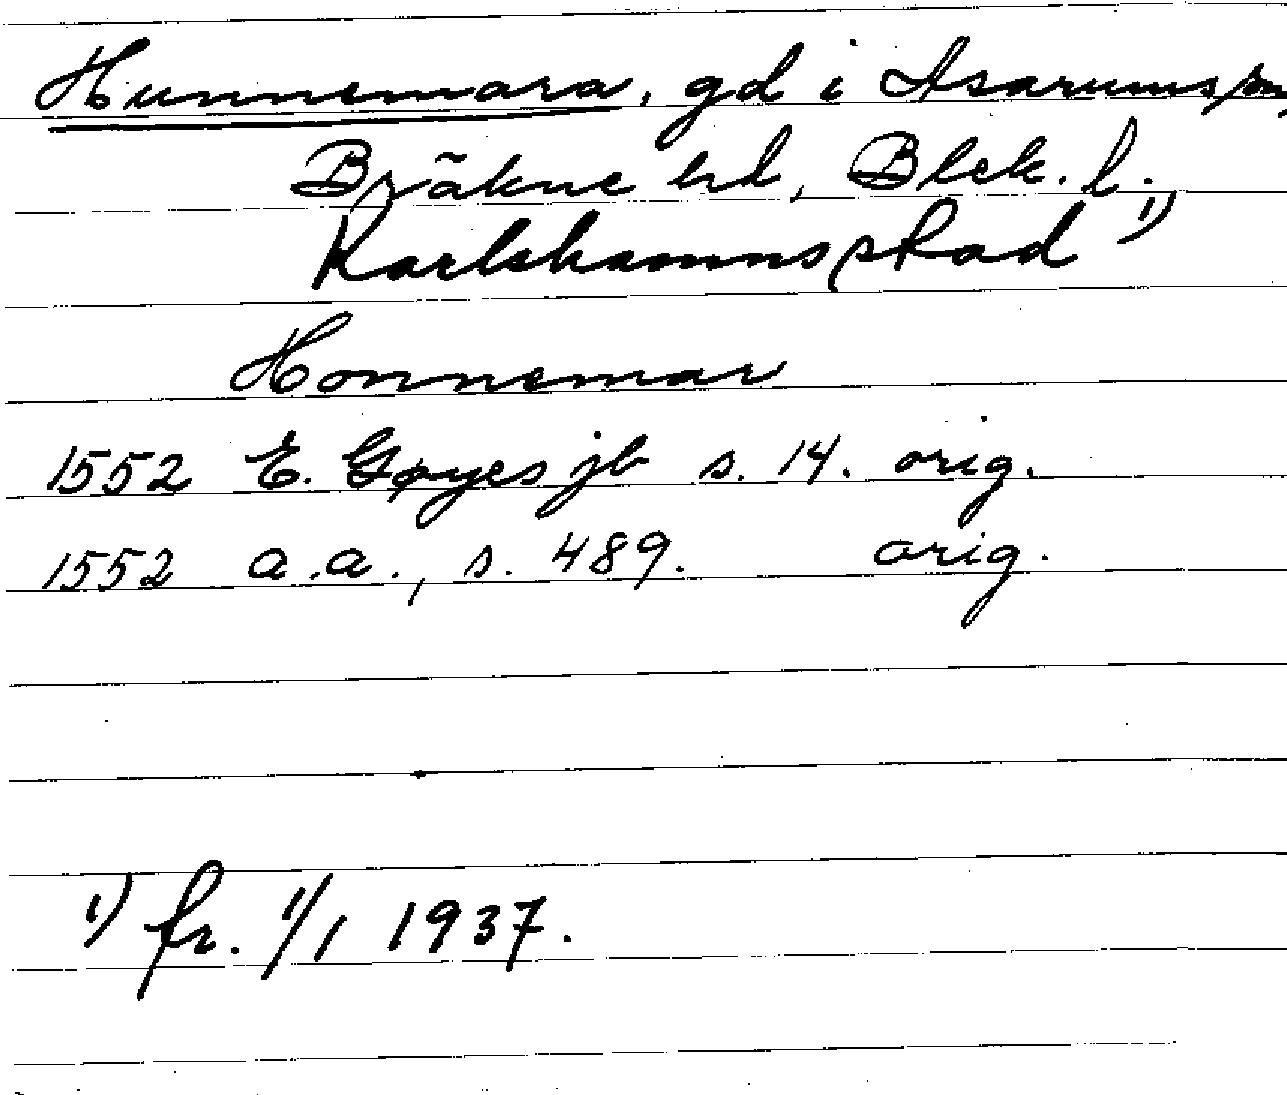 Hunnemara, gd i Asarums sn,
Bräkne hd, Blek. l.,
Karlshamns stad 1)
Honnemar
1552 E. Gøyes jb s. 14. orig.
1552 a.a., s. 489. orig.
1) fr. 1/1 1937.